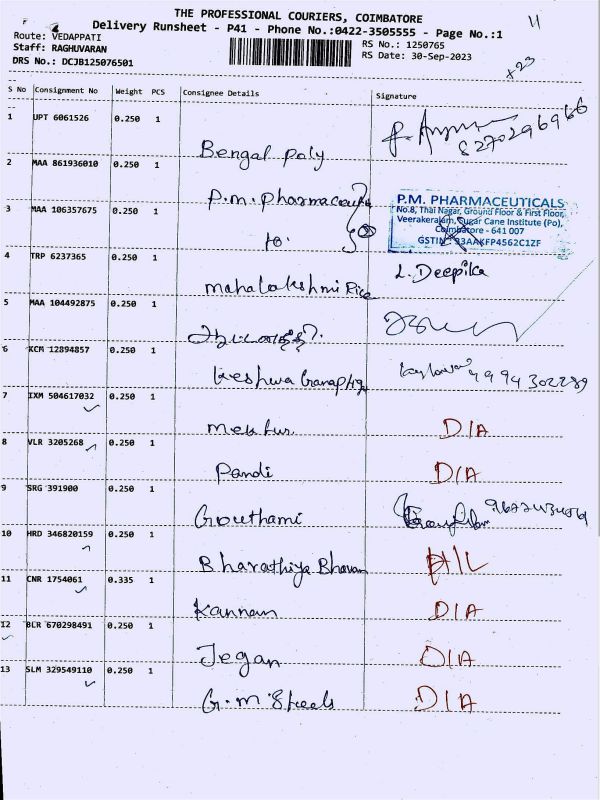 THE PROFESSIONAL COURIERS, COIMBATORE
11
Delivery Runsheet - P41 - Phone No.:0422-3505555 - Page No.:1
Route: VEDAPPATI
RS No.: 1250765
Staff: RAGHUVARAN
RS Date: 30-Sep-2023
DRS No.: DCJB125076501
x23
S No Consignment No Weight PCS Consignee Details Signature
1 UPT 6061526 0.250 1
8270296966
Bengal Poly
2 MAA 861936010 0.250 1
P.m. Pharmaceutical
P.M. PHARMACEUTICALS
No.8, Thai Nagar, Ground Floor & First Floor,
3 MAA 106357675 0.250 1
Veerakeralam, Sugar Cane Institute (Po),
Coimbatore - 641 007
to
GSTIN : 33AAKFP4562C1ZF
4 TRP 6237365 0.250 1
L. Deepika
mahalakshmi Rice
5 MAA 104492875 0.250 1
6 KCM 12894857 0.250 1
9994302289
Keshwa Ganapathy
7 IXM 504617032 0.250 1
mektur D/A
8 VLR 3205268 0.250 1
Pandi D/A
9 SRG 391900 0.250 1
Gouthami
10 HRD 346820159 0.250 1
Bharathiya Bhavan H/L
11 CNR 1754061 0.335 1
Kannan D/A
12 BLR 670298491 0.250 1
Jegan D/A
13 SLM 329549110 0.250 1
G.m Steels D/A